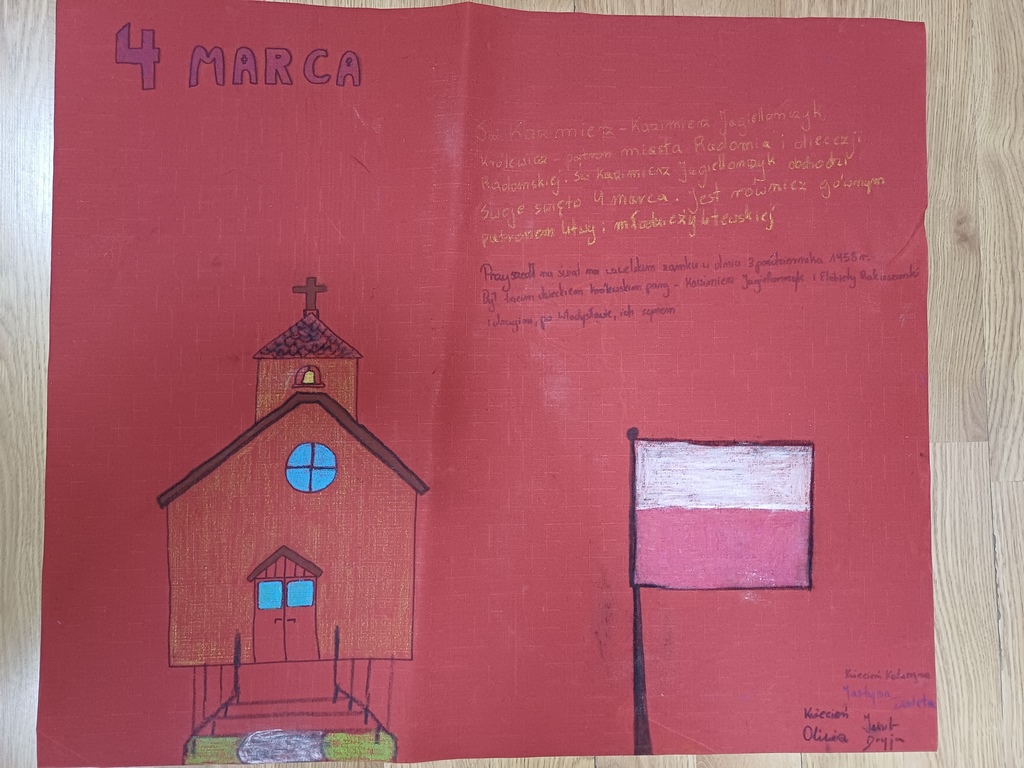 4 MARCA
Św. Kazimierz - Kazimierz Jagiellończyk,
Królewicz - patron miasta Radomia i diecezji
Radomskiej. Św Kazimierz Jagiellończyk obchodzi
swoje święto 4 marca. Jest również głównym
patronem Litwy i młodzieży Litewskiej
Przyszedł na świat na wawelskim zamku w dniu 3 października 1458 r.
Był trzecim dzieckiem królewskiej pary - Kazimierza Jagiellończyk i Elżbiety Rakuszanki
i drugim, po Władysławie, ich synem
Kwiecień Katarzyna
Justyna
Kwiecień Jakub
Oliwia Dryja